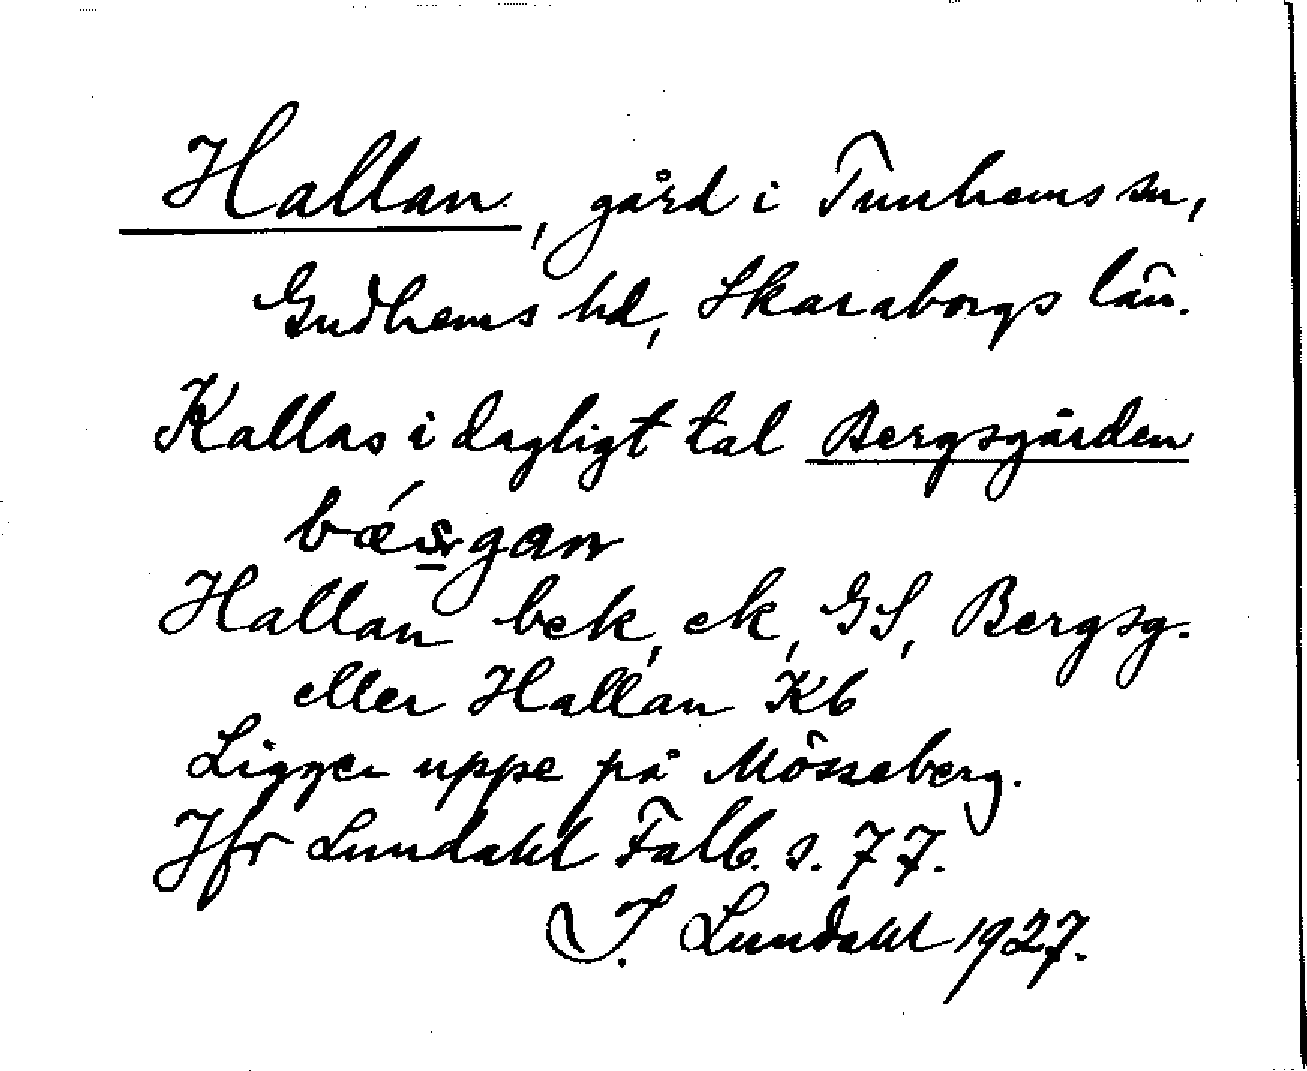 Hallan, gård i Tunhems sn,
Gudhems hd, Skaraborgs län.
Kallas i dagligt tal Bergsgården
Hallan bek, ek, GS, Bergsg.
eller Hallan Kb
Ligger uppe på Mösseberg.
Jfr Lundahl Falb. s. 77.
I. Lundahl 1927.